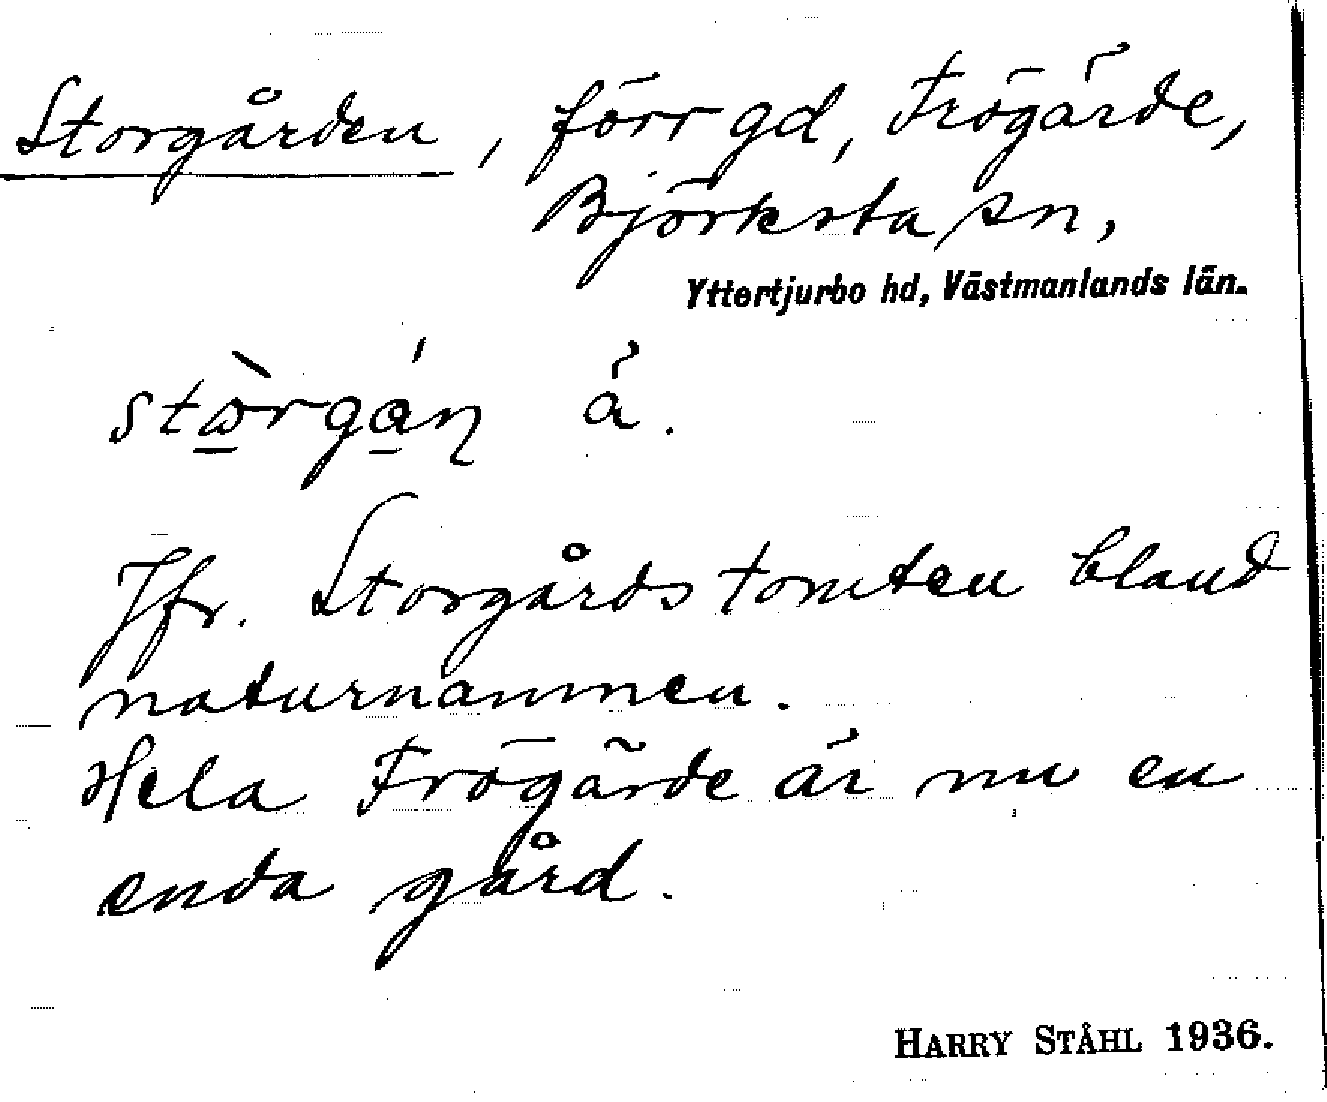 Storgården, förr gd, Frögärde,
Björksta sn,
Yttertjurbo hd, Västmanlands län.
stòrgán å.
Jfr. Storgårdstomten bland
naturnamnen.
Hela Frögärde är nu en
enda gård.
HARRY STÅHL 1936.